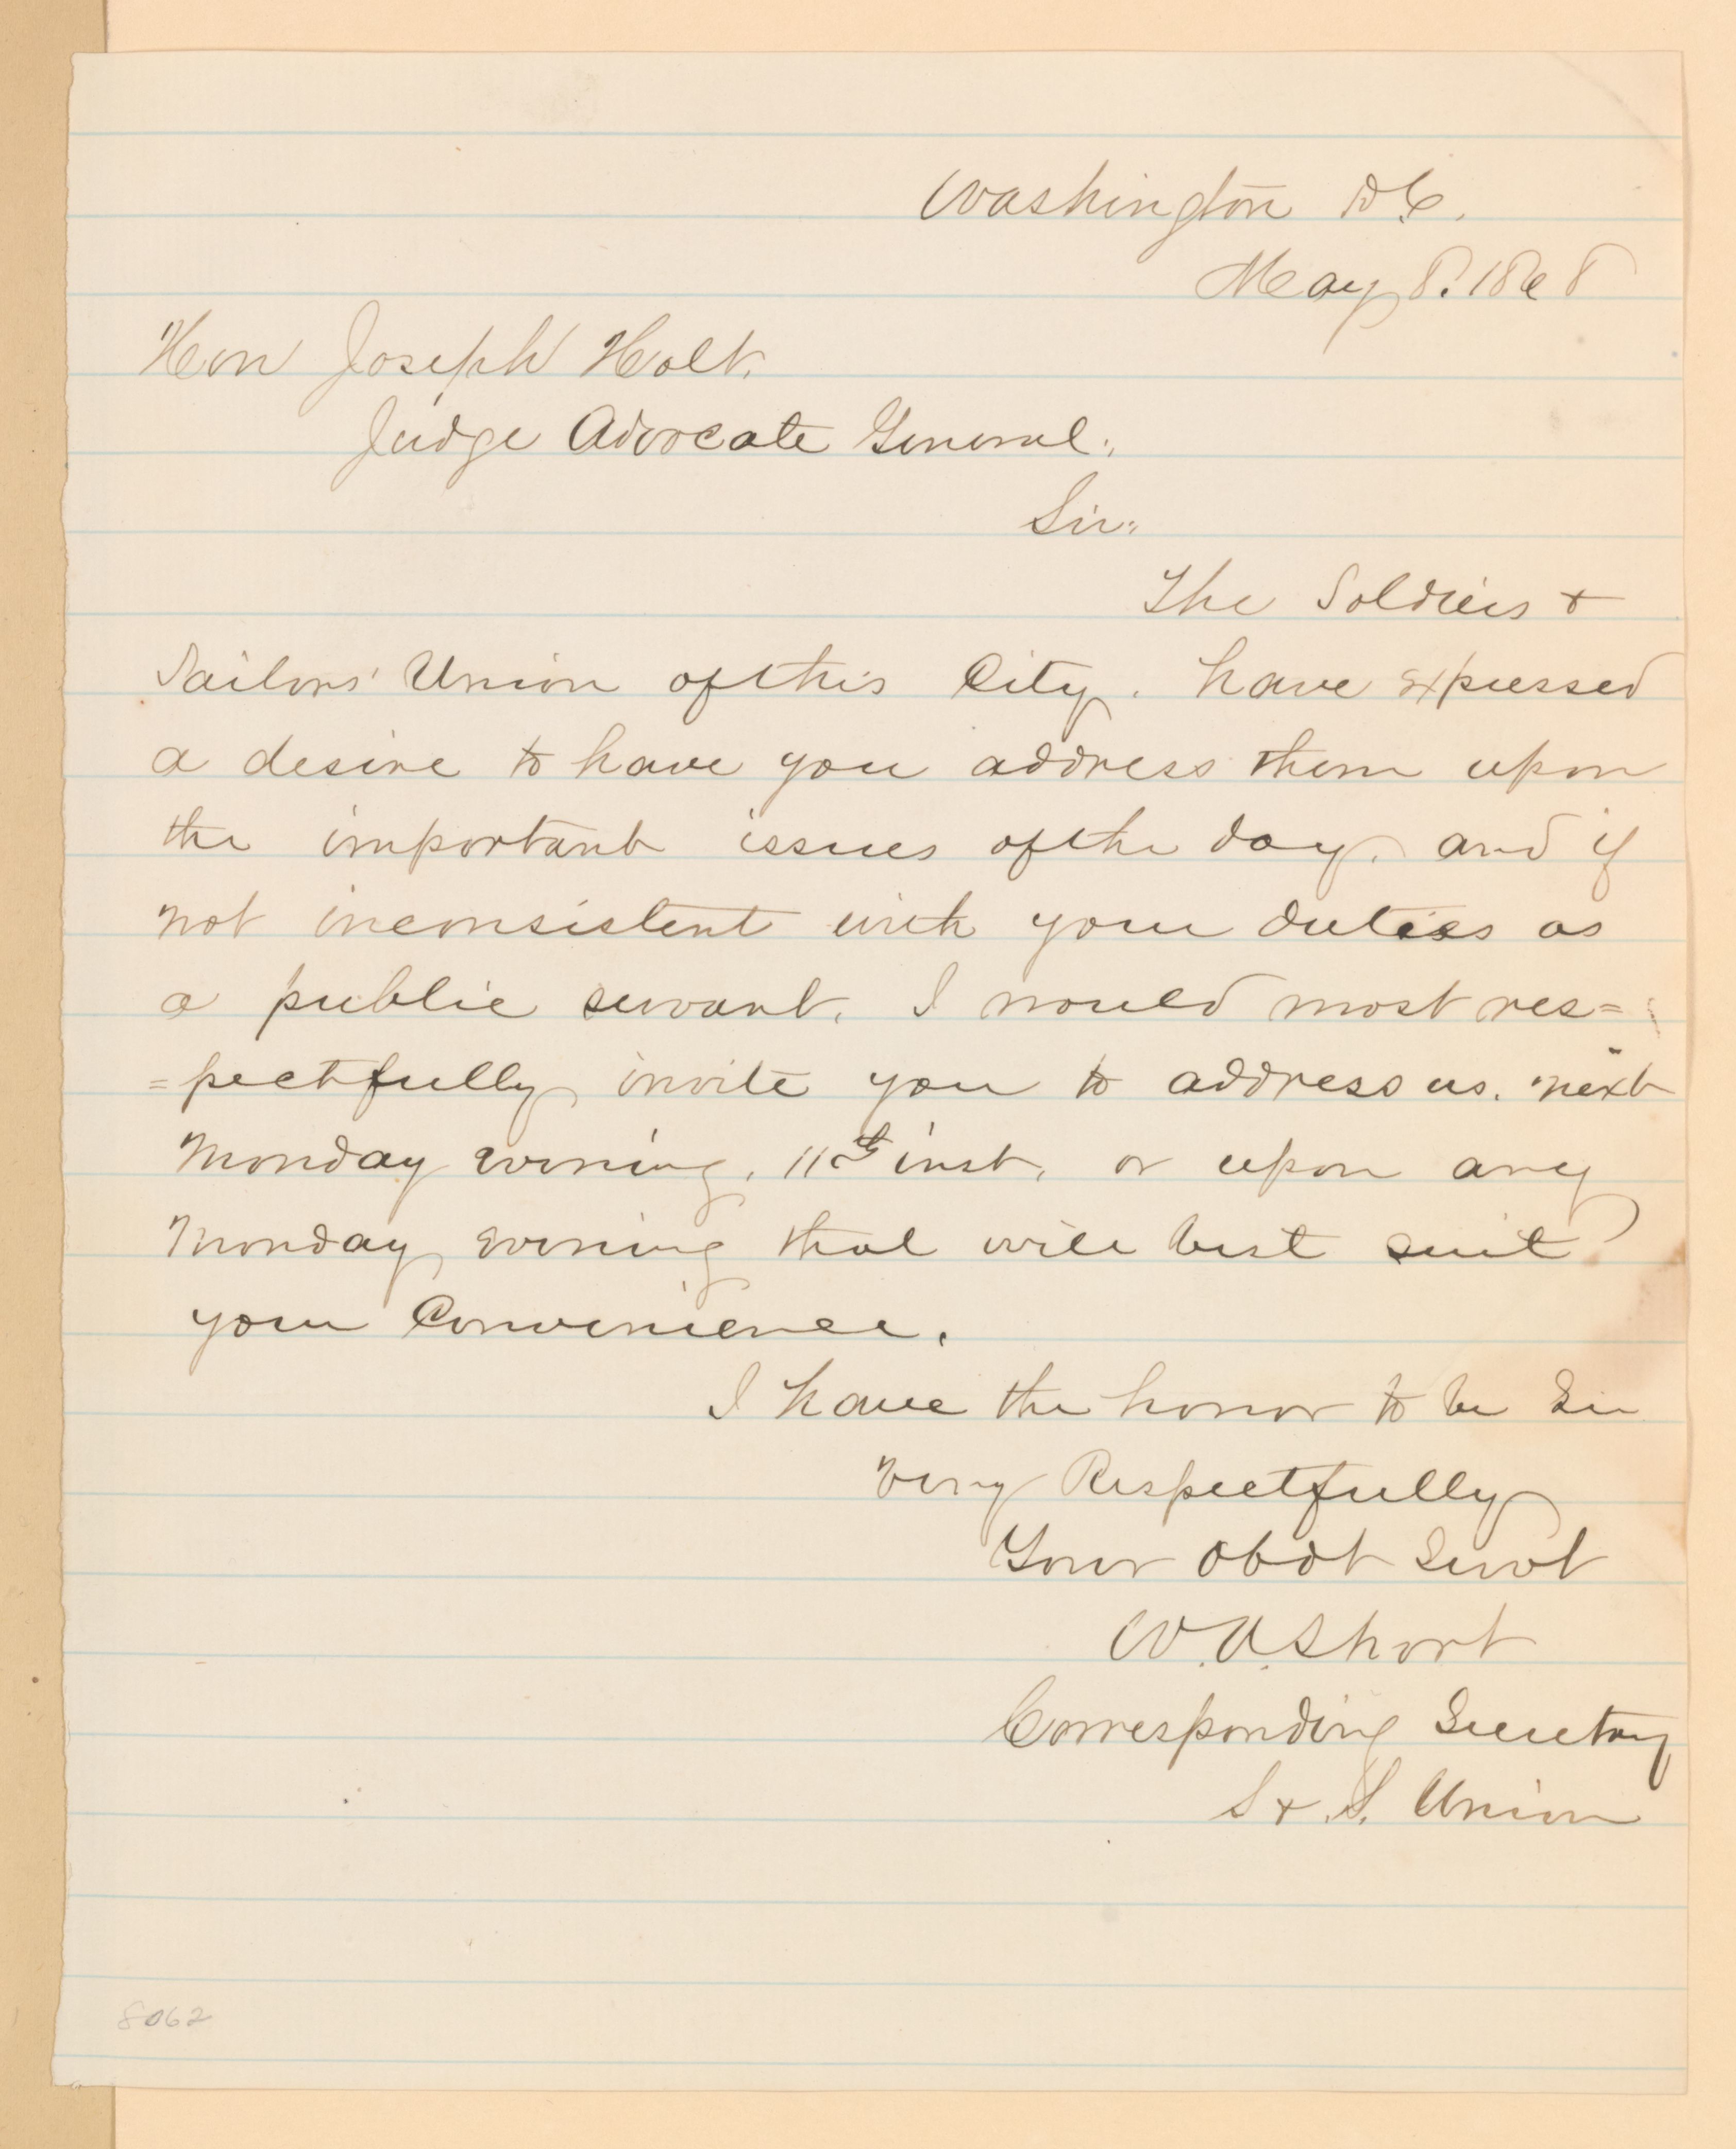 Washington D.C.
May 8. 1868
Hon Joseph Holt.
Judge Advocate General:
Sir:
The Soldiers &
Sailors' Union of this City. have expressed
a desire to have you address them upon
the important issues of the day. and if
not inconsistent with your duties as
a public servant. I would most res=
=pectfully invite you to address us. next
Monday evening. 11th inst. or upon any
Monday evening that will best suit
your Convenience.
I have the honor to be Sir
Very Respectfully
Your Obdt Servt
W. A. Short
Corresponding Secretary
S & S. Union
8062